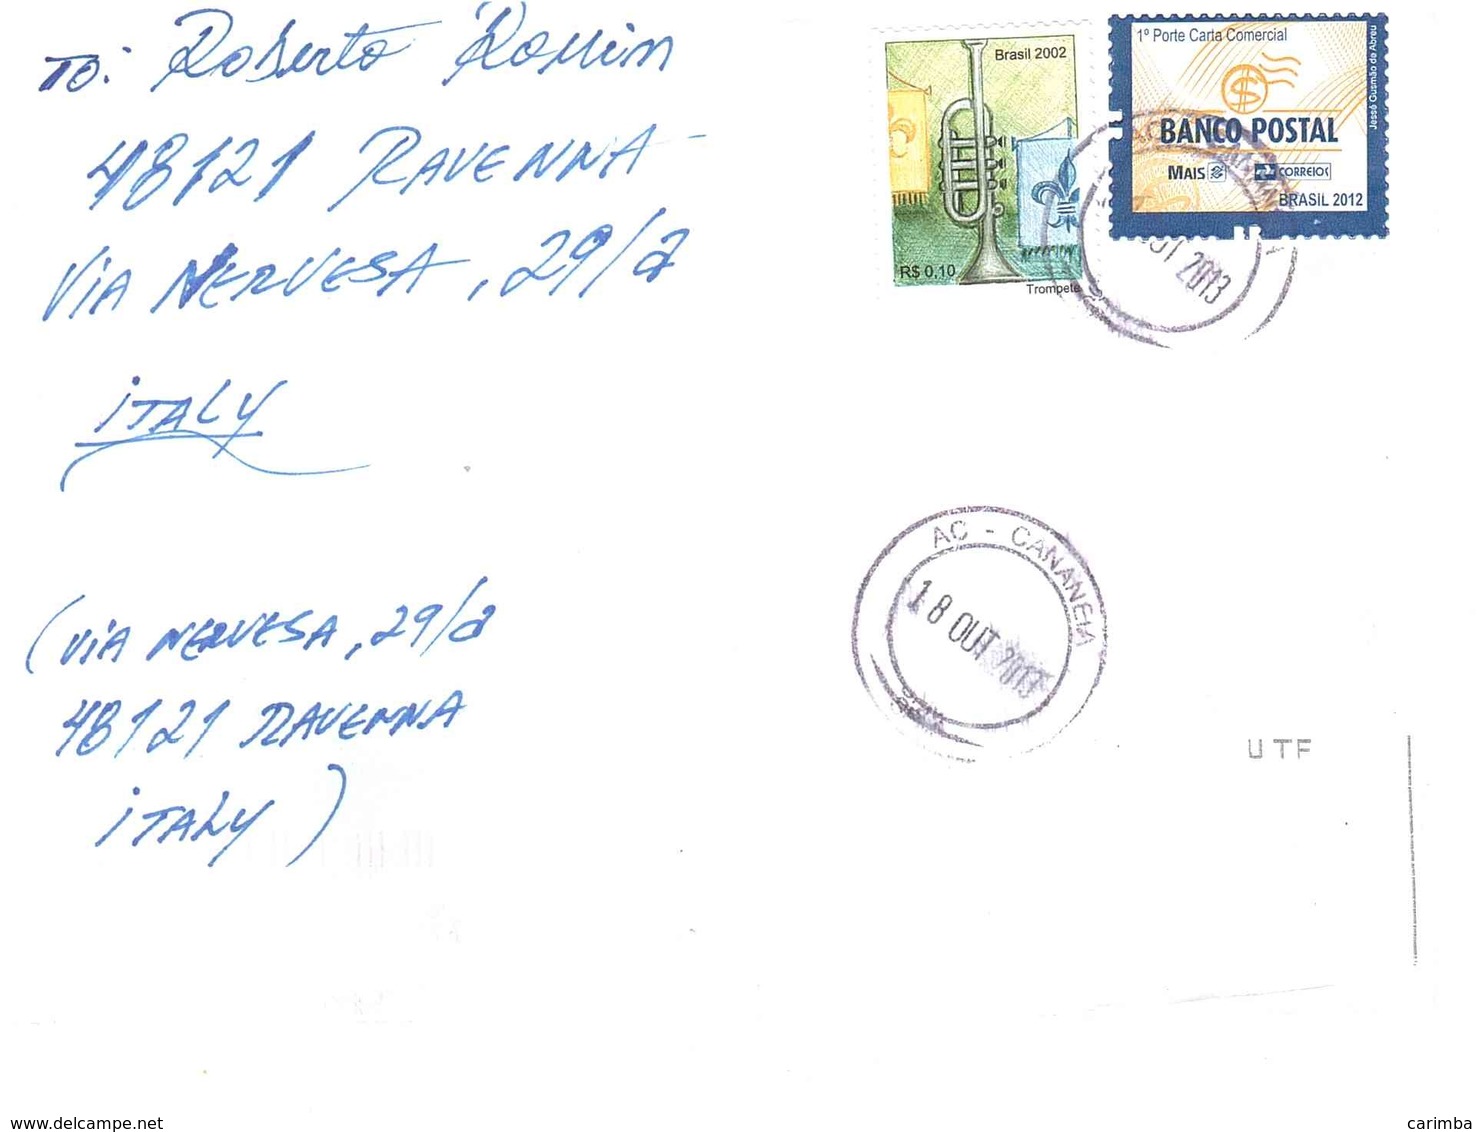 TO: Roberto Rossin
48121 RAVENNA
VIA NERVESA, 29/a
ITALY
(VIA NERVESA, 29/a
48121 RAVENNA
ITALY)
Brasil 2002
R$ 0,10
Trompete
1º Porte Carta Comercial
BANCO POSTAL
MAIS CORREIOS
BRASIL 2012
Jessé Gusmão de Abreu
2013
AC - CANANEIA
18 OUT 2013
UTF
delcampe.net
carimba